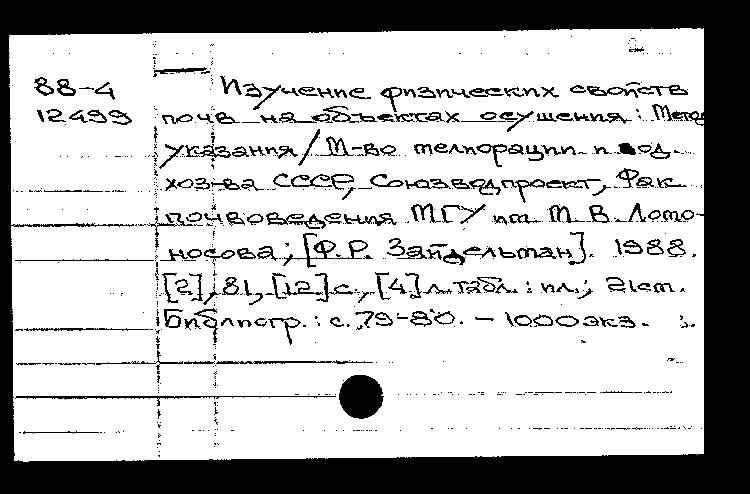 88-4
12499
Изучение физических свойств
почв на объектах осушения : Метод
указания / М-во мелиорации и вод.
хоз-ва СССР, Союзводпроект, Фак
почвоведения МГУ им. М. В. Ломо-
носова; [Ф.Р. Зайдельман]. 1988.
[2], 81, [12] с., [4] л. табл. : ил.; 21 см.
Библиогр. : с. 79-80. – 1000 экз.